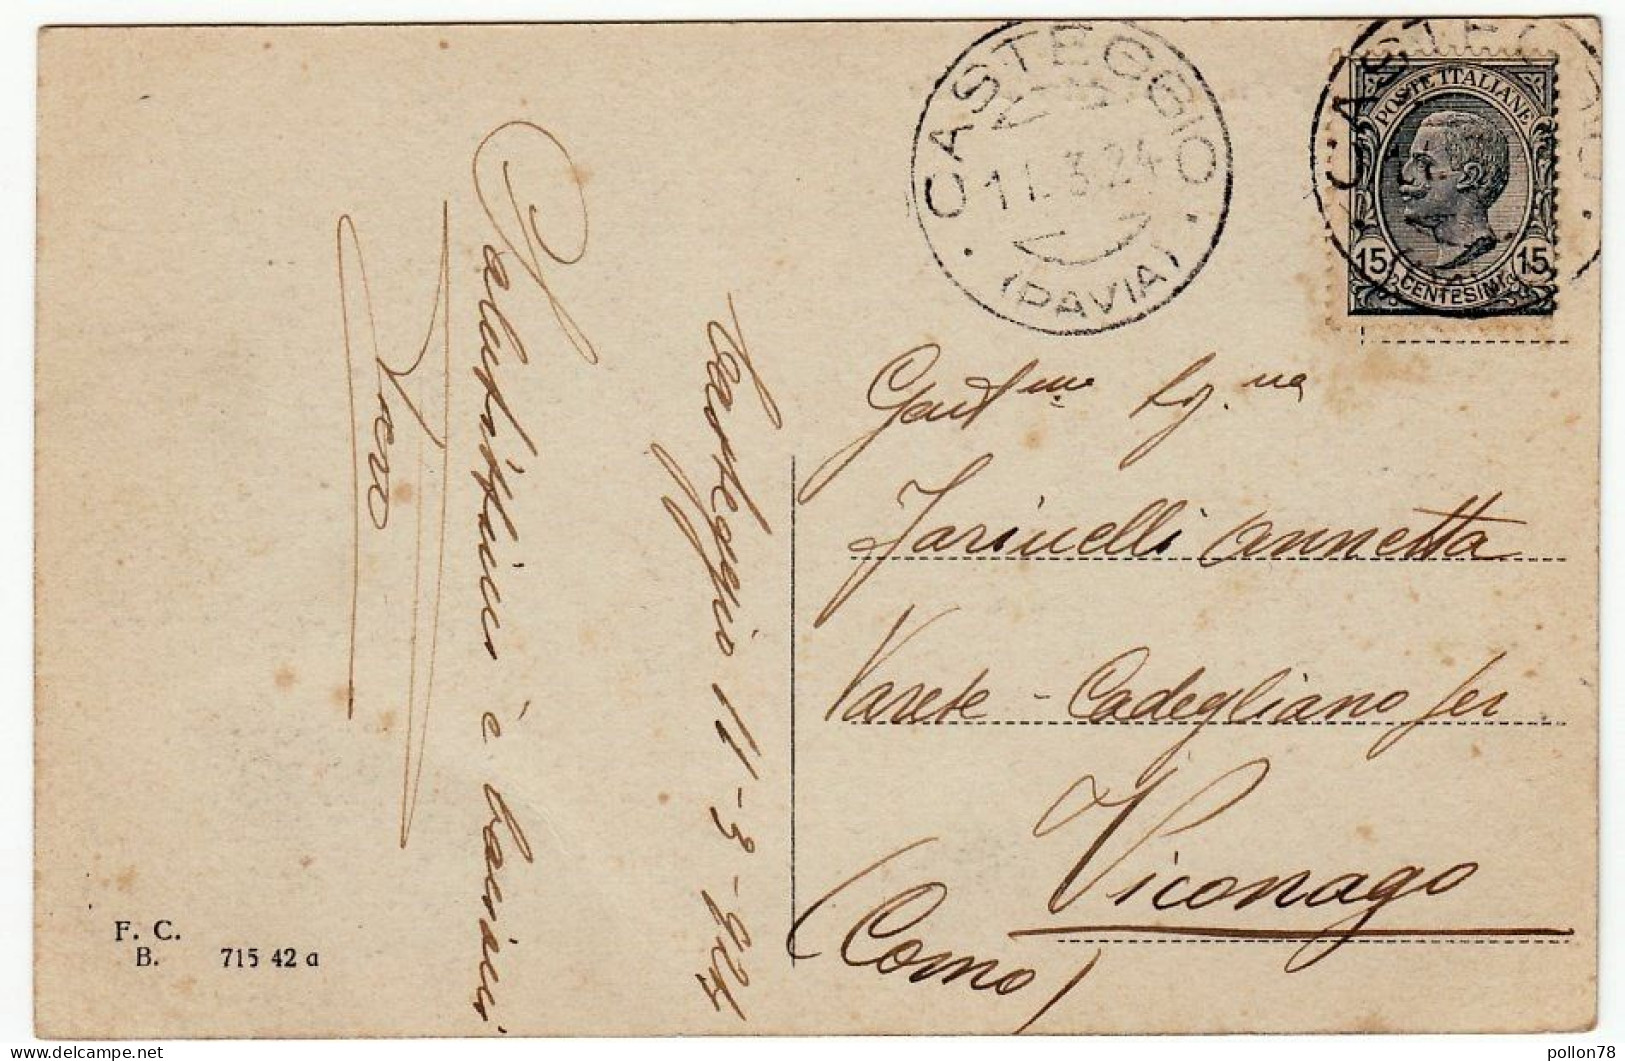 Casteggio 11-3-924
Salutissimi e bacioni
CASTEGGIO
11.3.24
(PAVIA)
POSTE ITALIANE
15 CENTESIMI 15
Gent.ma Sig.na
Farinelli Annetta
Varese - Cadegliano per
Viconago
(Como)
F. C.
B. 715 42 a
pollon78